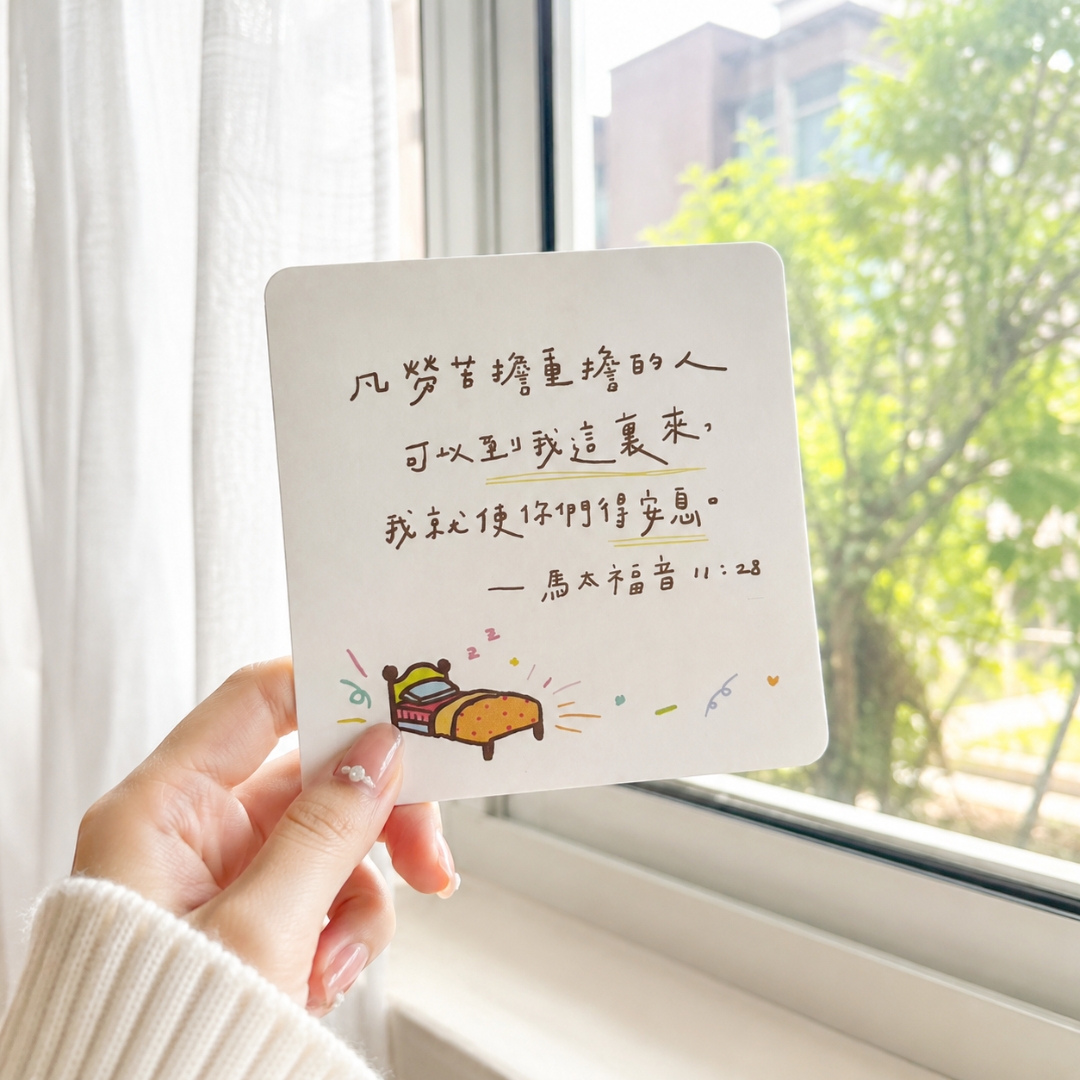 凡勞苦擔重擔的人
可以到我這裏來,
我就使你們得安息。
— 馬太福音 11:28
z z